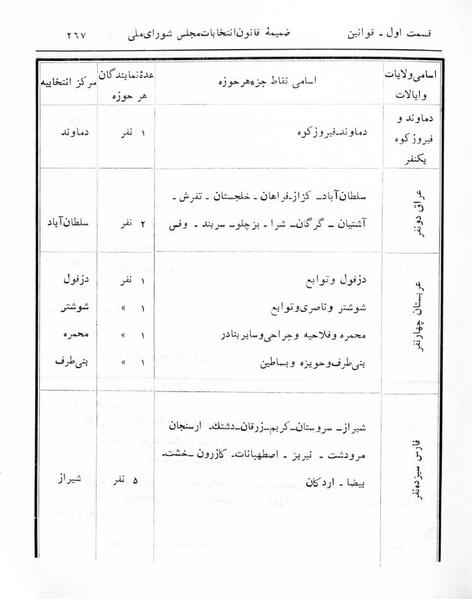 قسمت اول ـ قوانین ضمیمهٔ قانون انتخابات مجلس شورای ملی ۲۶۷
اسامی ولایات و ایالات اسامی نقاط جزء هر حوزه عدهٔ نمایندگان هر حوزه مرکز انتخابیه
دماوند و فیروزکوه یکنفر دماوند ـ فیروزکوه ۱ نفر دماوند
عراق دو نفر
سلطان‌آباد ـ کزاز ـ فراهان ـ خلجستان ـ تفرش ـ
آشتیان ـ گرگان ـ شرا ـ بزچلو ـ سربند ـ وفس ۲ نفر سلطان‌آباد
عربستان چهار نفر
دزفول و توابع ۱ نفر دزفول
شوشتر و ناصری و توابع ۱ » شوشتر
محمره و فلاحیه و جراحی و سایر بنادر ۱ » محمره
بنی‌طرف و حویزه و بساطین ۱ » بنی‌طرف
فارس سیزده نفر
شیراز ـ سروستان ـ کریم ـ زرقان ـ دشتك ـ ارسنجان
مرودشت ـ نیریز ـ اصطهبانات ـ کازرون ـ خشت ـ
بیضا ـ اردکان ۵ نفر شیراز